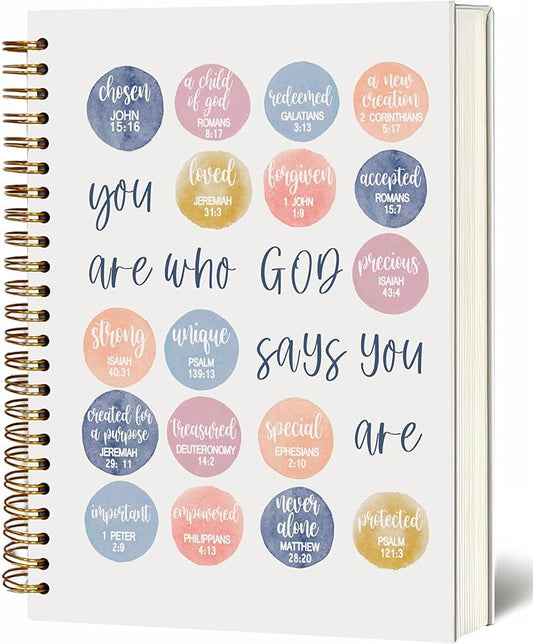 chosen
JOHN
15:16
a child
of god
ROMANS
8:17
redeemed
GALATIANS
3:13
a new
creation
2 CORINTHIANS
5:17
you
loved
JEREMIAH
31:3
forgiven
1 JOHN
1:9
accepted
ROMANS
15:7
are who GOD
precious
ISAIAH
43:4
strong
ISAIAH
40:31
unique
PSALM
139:13
says you
created for
a purpose
JEREMIAH
29: 11
treasured
DEUTERONOMY
14:2
special
EPHESIANS
2:10
are
important
1 PETER
2:9
empowered
PHILIPPIANS
4:13
never
alone
MATTHEW
28:20
protected
PSALM
121:3